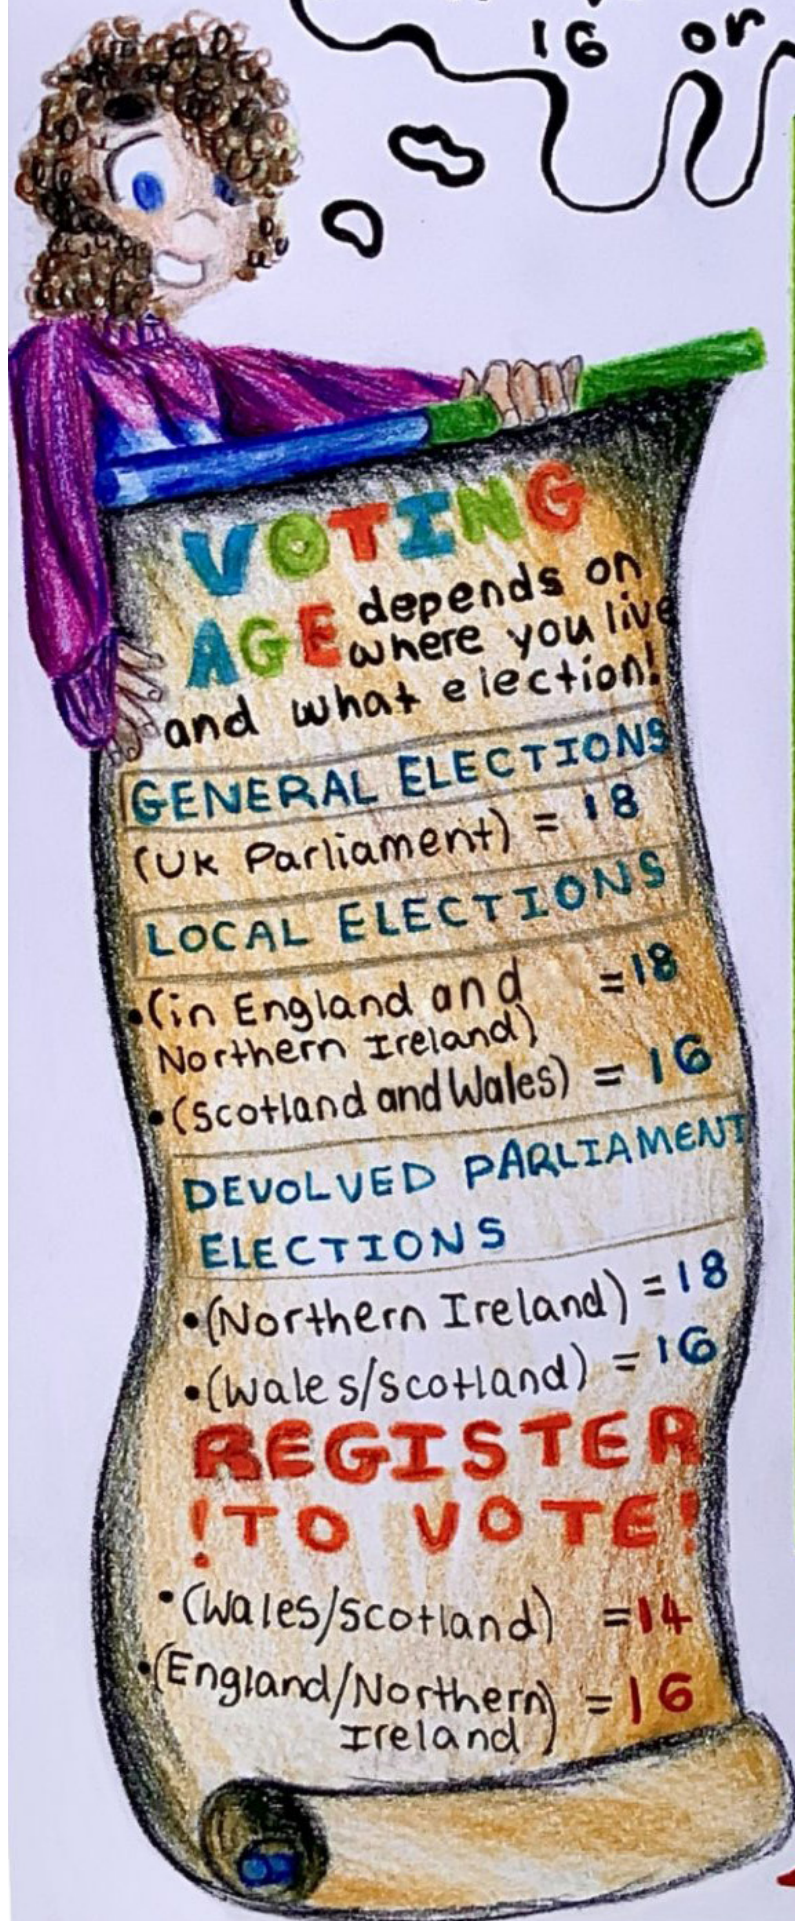 16 or
VOTING
AGE depends on
where you live
and what election!
GENERAL ELECTIONS
(UK Parliament) = 18
LOCAL ELECTIONS
•(in England and =18
Northern Ireland)
•(Scotland and Wales) = 16
DEVOLVED PARLIAMENT
ELECTIONS
•(Northern Ireland) = 18
•(Wales/Scotland) = 16
REGISTER
!TO VOTE!
•(Wales/Scotland) =14
•(England/Northern = 16
Ireland)